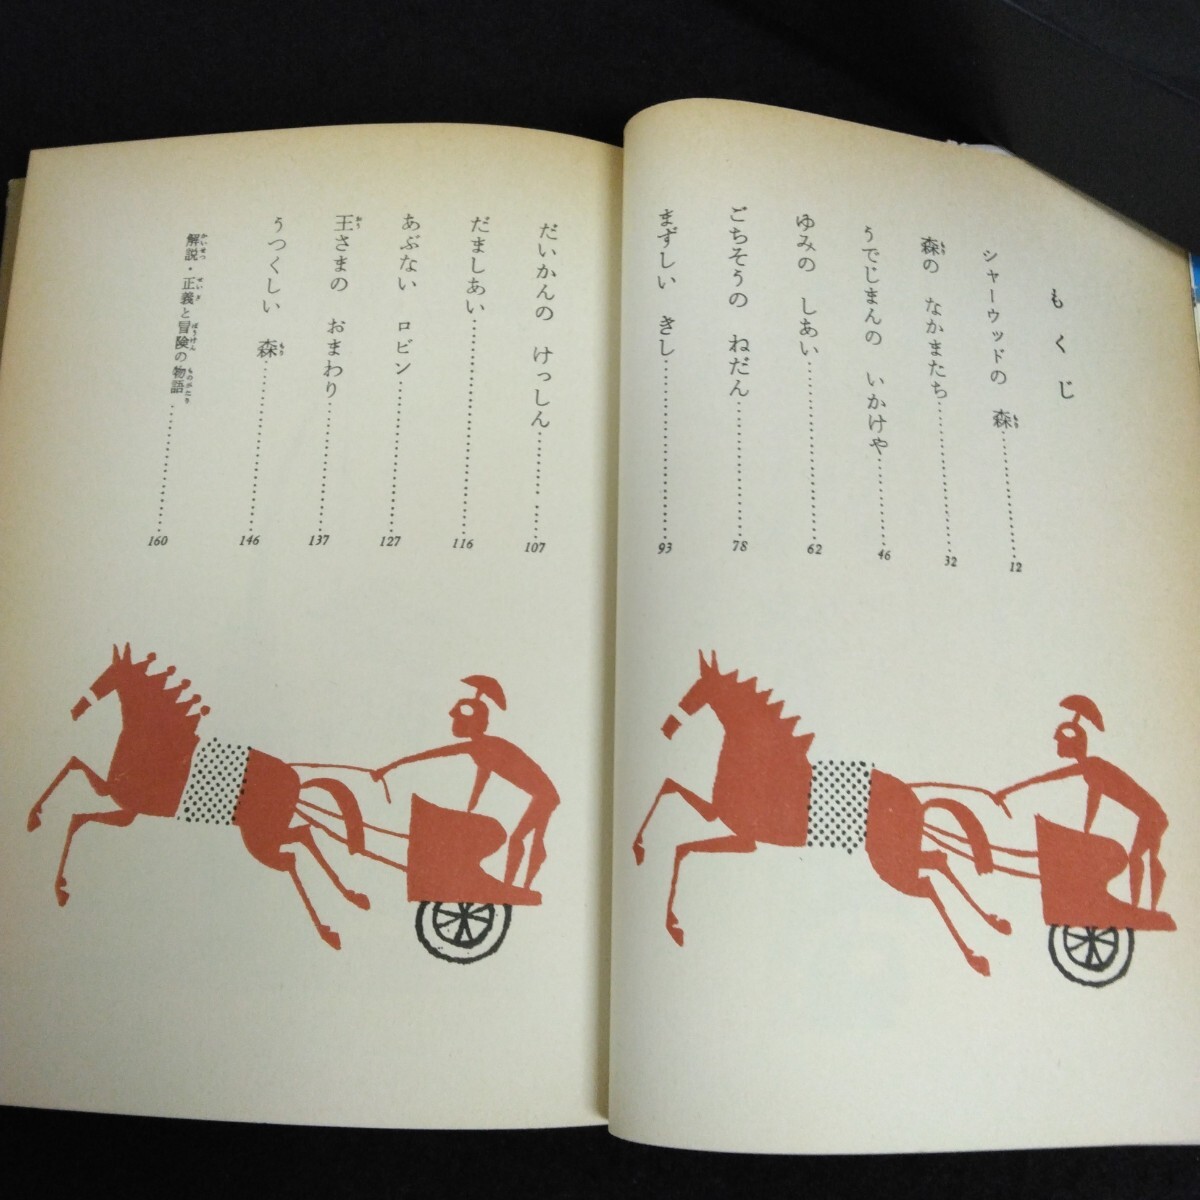 もくじ
シャーウッドの 森(もり)……………12
森(もり)の なかまたち……………32
うでじまんの いかけや……………46
ゆみの しあい……………62
ごちそうの ねだん……………78
まずしい きし……………93
だいかんの けっしん……………107
だましあい……………116
あぶない ロビン……………127
王(おう)さまの おまわり……………137
うつくしい 森(もり)……………146
解説(かいせつ)・正義(せいぎ)と冒険(ぼうけん)の物語(ものがたり)……………160